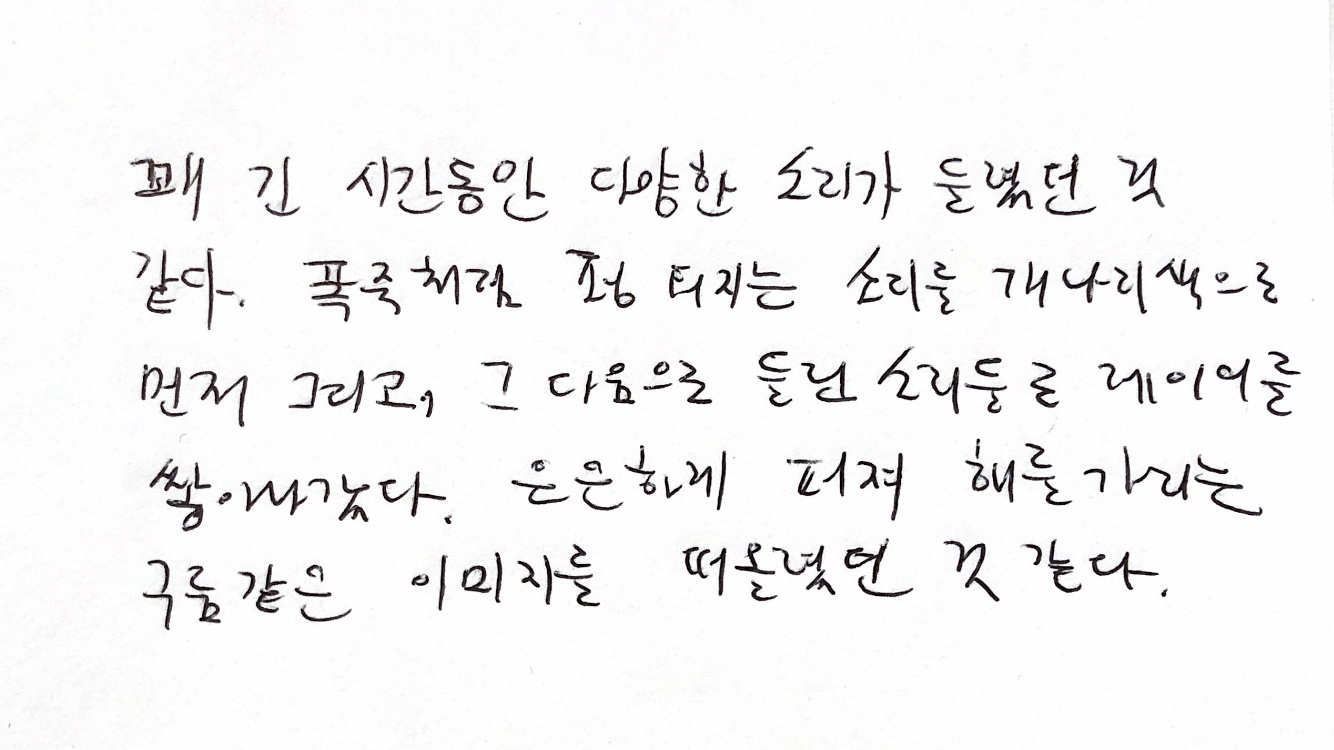 꽤 긴 시간동안 다양한 소리가 들렸던 것
같다. 폭죽처럼 펑 터지는 소리를 개나리색으로
먼저 그리고, 그 다음으로 들린 소리들로 레이어를
쌓아나갔다. 은은하게 퍼져 해를 가리는
구름같은 이미지를 떠올렸던 것 같다.